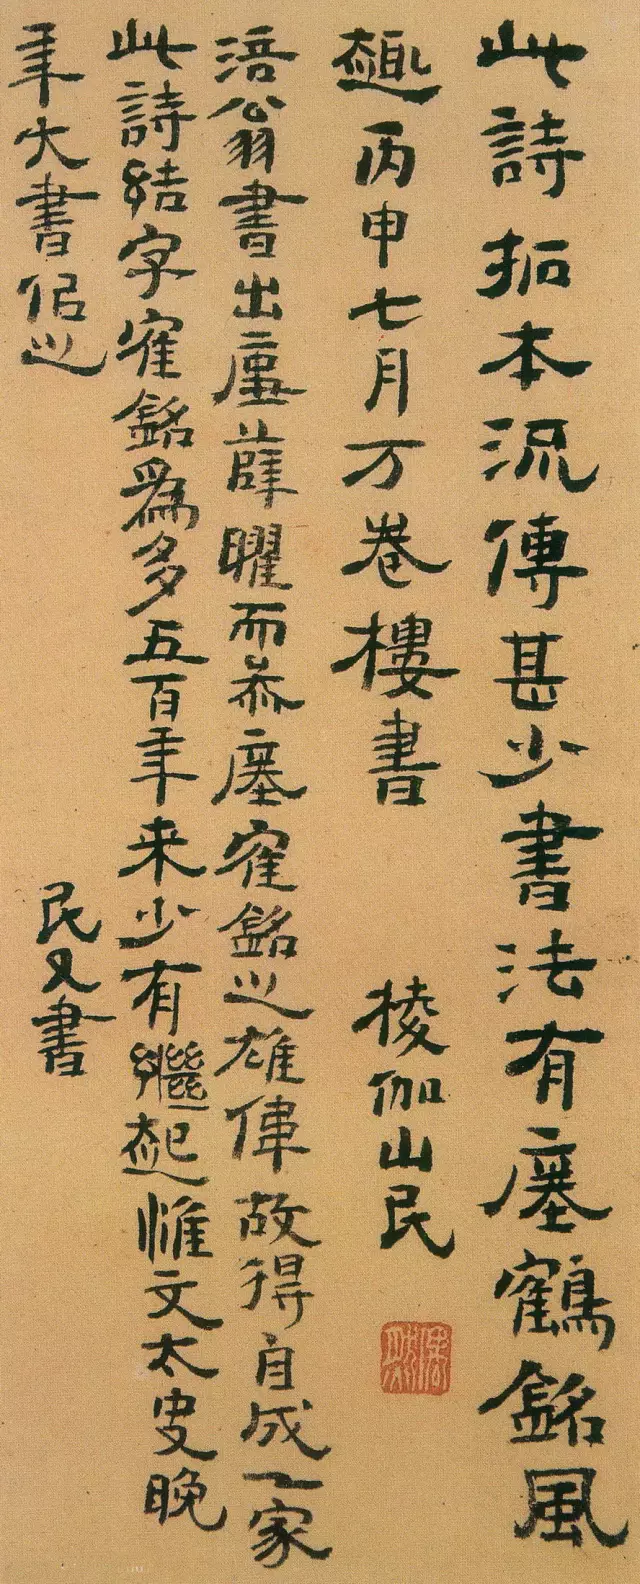 此詩拓本流傳甚少書法有瘞鶴銘風
趣丙申七月万卷樓書 楞伽山民
涪翁書出薛曜而叅瘞寉銘之雄偉故得自成一家
此詩結字寉銘爲多五百年来少有繼起惟文太史晚
年大書佀之 民又書